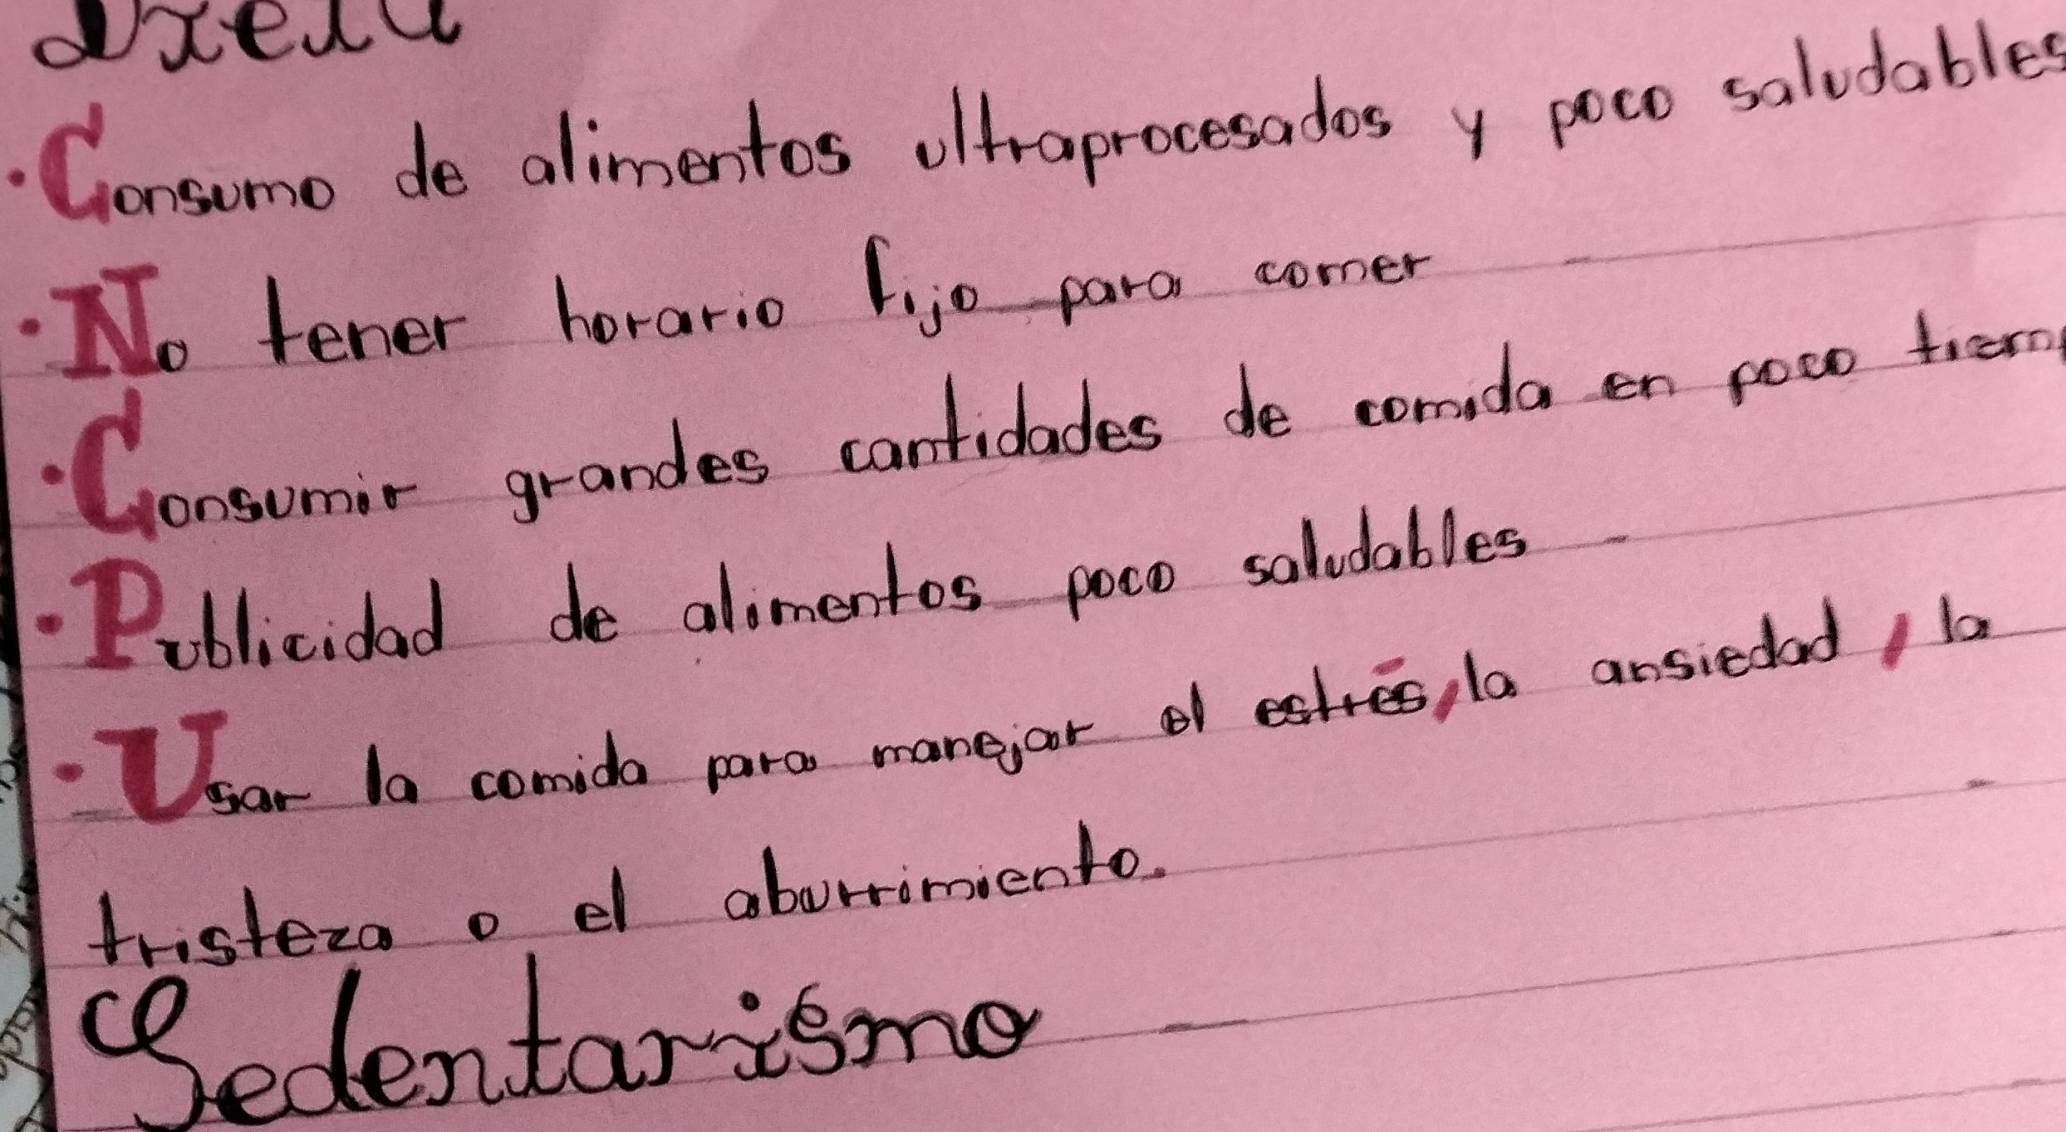 ·Consumo de alimentos ultraprocesados y poco saludables
·No tener horario fijo para comer
·Consumir grandes cantidades de comida en poco tiem
·Publicidad de alimentos poco saludables
·Usar la comida para manejar el estrés, la ansiedad, la
tristeza o el aburrimiento.
Sedentarismo